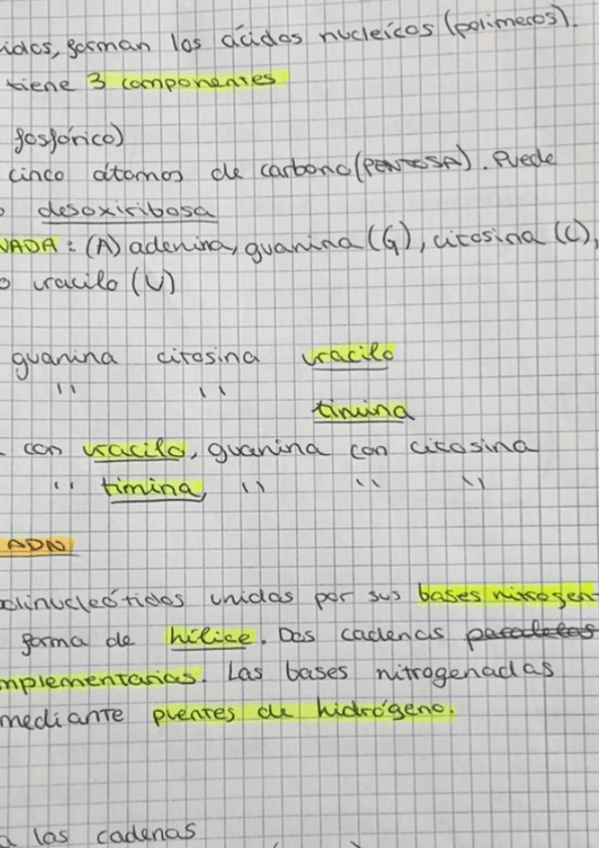 idos, forman los ácidos nucleícos (polimeros).
tiene 3 componentes
fosfórico)
cinco átomos de carbono (PENTOSA). Puede
o desoxiribosa
NADA: (A) adenina, guanina (G), citosina (C),
o uracilo (U)
guanina citosina uracilo
" " timina
con uracilo, guanina con citosina
" timina, " " "
ADN
olinucleótidos unidas por sus bases nitrogen
forma de hilice. Dos cadenas paralelas
mplementarias. Las bases nitrogenadas
mediante puentes de hidrógeno.
a las cadenas